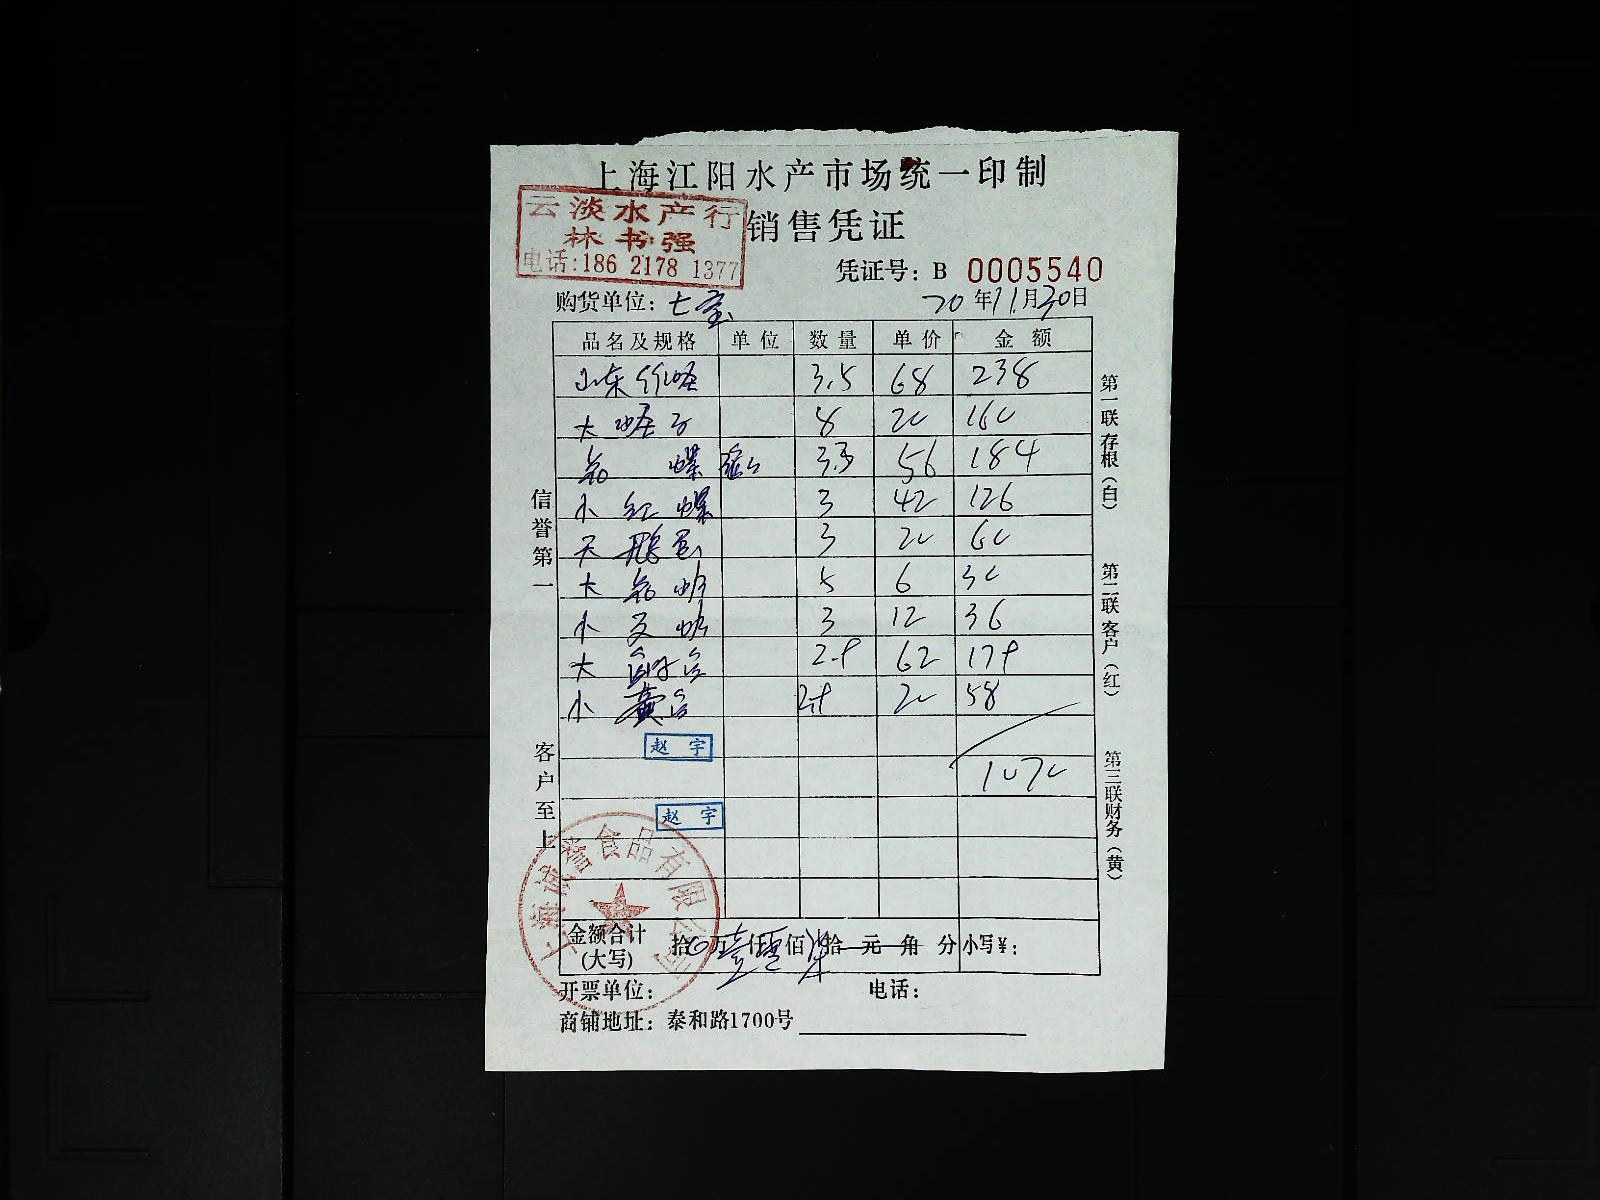 上海江阳水产市场统一印制
云淡水产行
林书强
电话:186 2178 1377
销售凭证
凭证号: B 0005540
购货单位: 七宝 20年11月30日
品名及规格 单位 数量 单价 金额
山东竹蛏 3.5 68 238
大蛏子 8 20 160
3.3 56 184
小红螺 3 42 126
天鹅蛋 3 20 60
大 5 6 30
小 3 12 36
大 62
小黄 20 58
赵宇
1070
赵宇
上海诚誉食品有限公司
金额合计
(大写)
拾 万壹仟零佰柒拾元角分 小写¥:
开票单位: 电话:
商铺地址: 泰和路1700号
信誉第一
客户至上
第一联 存根(白)
第二联 客户(红)
第三联 财务(黄)